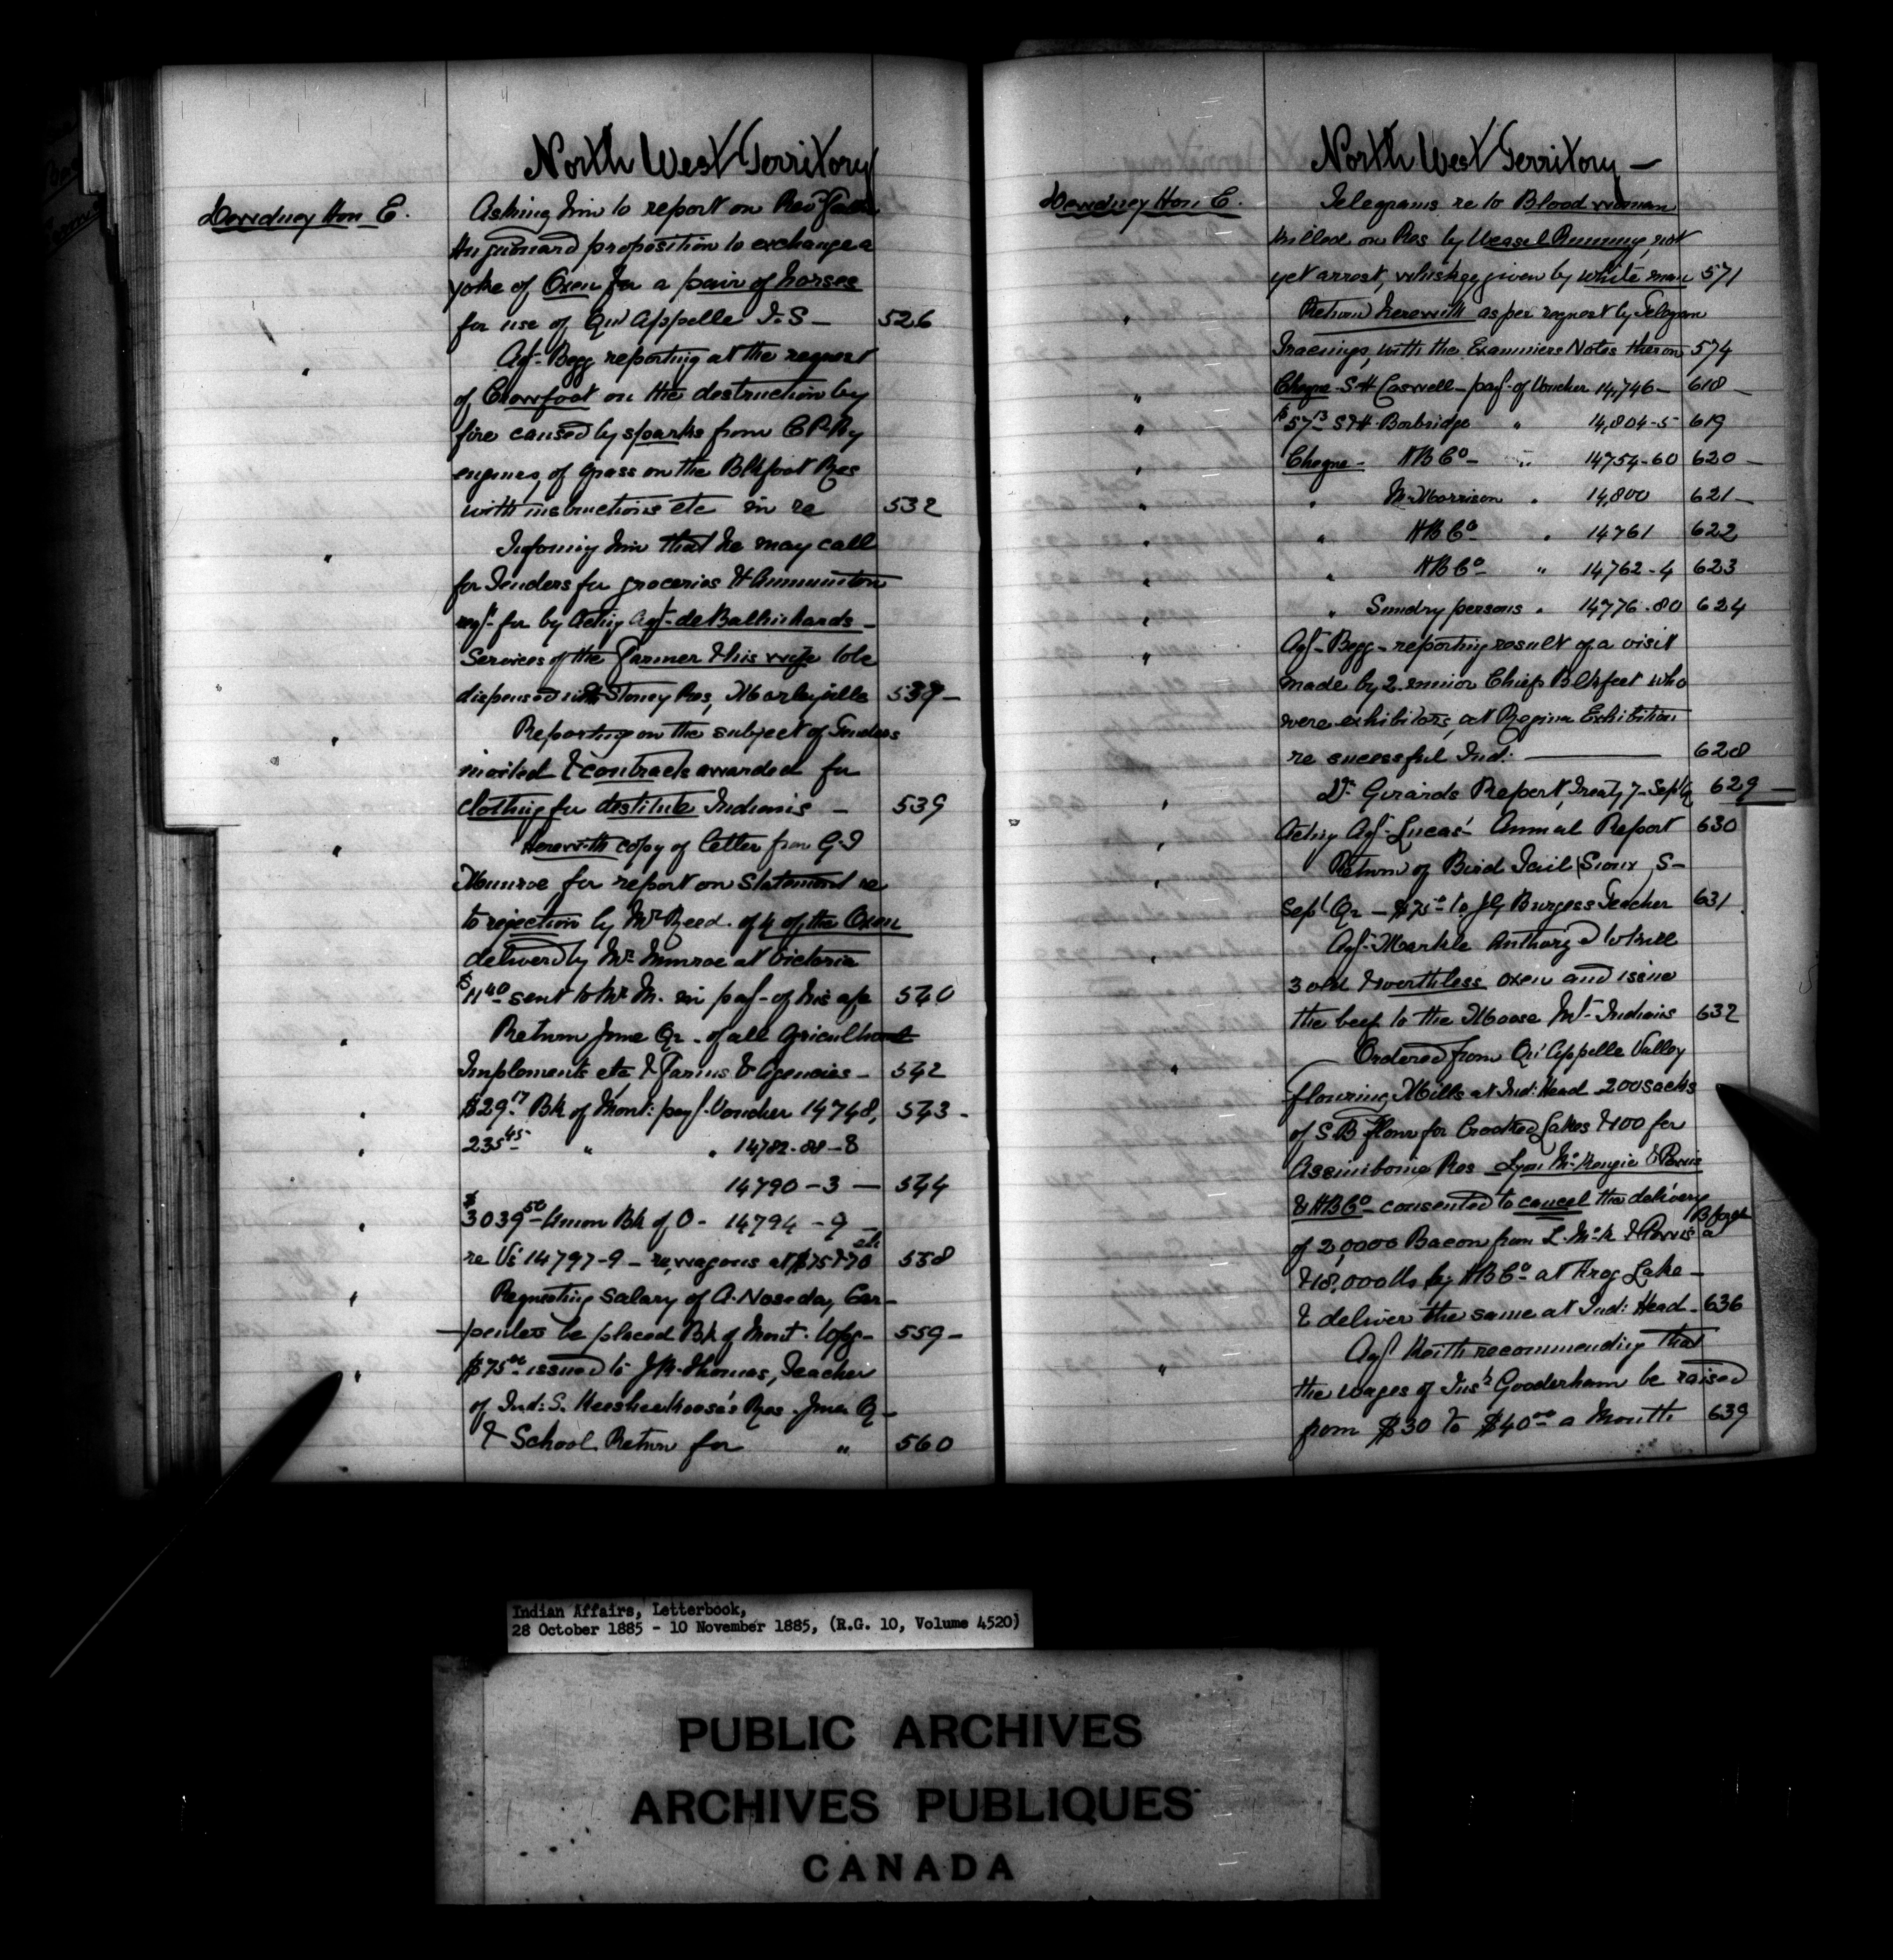 North West Territory
Dewdney Hon E.
Asking him to report on Rev^d Father
Hugonard proposition to exchange a
yoke of Oxen for a pair of horses
for use of Qu'Appelle I.S - 526
Agt. Begg reporting at the request
of Crowfoot on the destruction by
fire caused by sparks from C P Ry
engines, of grass on the Blkfoot Res
with instructions etc in re 532
Informing him that he may call
for Tenders for groceries & Ammuniton
reqd for by Acting Agt - de Balhinhards -
Services of the Farmer & his wife to be
dispensed with Stoney Res, Morleyville 538 -
Reporting on the subject of Tenders
invited & contracts awarded for
clothing for destitute Indians - 539
Herewith copy of letter from G.I
Munroe for report on Statement re
to rejection by Mr Reed. of 4 of the Oxen
delivered by Mr Munroe at Victoria
$11.40 sent to Mr M. in payt - of his a/c 540
Return June Qr - of all Agricultural
Implements etc & Farms & Agencies - 542
$29.17 Bk of Mont: payt. Voucher 14748, 543 -
235.45 " " 14782-88-8
14790-3 - 544
$3039.50 - Union Bk of O - 14794-9 -
re Vs 14797-9 - re, wagons at $75 & 70 ch 558
Requesting salary of A. Noseda, Car-
penter be placed Bk of Mont. 559 -
$75.00 issued to J R. Thomas, Teacher
of Ind: S. Keeshee Koose's Res - June Q -
& School Return for " 560
North West Territory -
Dewdney Hon E.
Telegrams re to Blood woman
killed on Res by Weasel Running, not
yet arrest, whiskey given by white man 571
Return herewith as per request by Telegam
Tracings, with the Examiners Notes theron 574
Cheque - S H Caswell - payt - of Voucher 14,746 - 618 -
$57.13 S & H. Borbridge " 14,804-5 619
Cheque - HB Co - " 14754-60 620 -
" M. Morrison " 14,800 621 -
" HB Co - " 14761 622
" HB Co - " 14762-4 623
" Sundry persons " 14776-80 624
Agt - Begg - reporting result of a visit
made by 2 minor Chiefs Blkfeet who
were exhibitors, at Regina Exhibition
re sucessful Ind: 628
Dr. Girards Report, Treaty 7 - Sept 629 -
Acting Agt. Lucas' Annual Report 630
Return of Bird Tail (Sioux) S -
Sept Qr - $75 - to J G Burgess Teacher 631
Agt. Markle Authorzd to kill
3 old & worthless oxen and issue
the beef to the Moose Mt. Indians 632
Ordered from Qu'Appelle Valley
flouring Mills at Ind: Head 200 sacks
of S.B flour for Crooked Lakes & 100 for
Assiniboine Res - Lyon McKenzie & Powis
& HB Co - consented to cancel the delivery
of 20,000 Bacon from L. McK & Powis a B ford
& 18,000 lbs by HB Co - at Frog Lake -
& deliver the same at Ind: Head - 636
Agt Keith recommending that
the wages of Insr Gooderham be raised
from $30 to $40.00 a Month 639
Indian Affairs, Letterbook,
28 October 1885 - 10 November 1885, (R.G. 10, Volume 4520)
PUBLIC ARCHIVES
ARCHIVES PUBLIQUES
CANADA